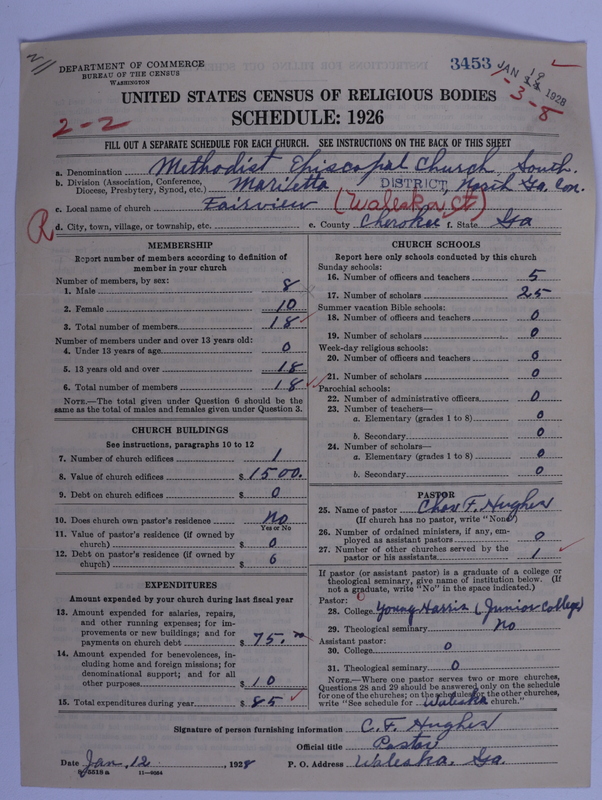 DEPARTMENT OF COMMERCE
BUREAU OF THE CENSUS
WASHINGTON
3453
JAN 19 1928
1-3-8
UNITED STATES CENSUS OF RELIGIOUS BODIES
SCHEDULE: 1926
2-2
FILL OUT A SEPARATE SCHEDULE FOR EACH CHURCH. SEE INSTRUCTIONS ON THE BACK OF THIS SHEET
a. Denomination Methodist Episcopal Church, South.
b. Division (Association, Conference, Diocese, Presbytery, Synod, etc.) Marietta DISTRICT, North Ga. Con.
c. Local name of church Fairview (Waleska Ct)
R
d. City, town, village, or township, etc. e. County Cherokee f. State Ga
MEMBERSHIP
Report number of members according to definition of
member in your church
Number of members, by sex:
1. Male 8
2. Female 10
3. Total number of members 18
Number of members under and over 13 years old:
4. Under 13 years of age 0
5. 13 years old and over 18
6. Total number of members 18
NOTE.—The total given under Question 6 should be
same as the total of males and females given under Question 3.
CHURCH BUILDINGS
See instructions, paragraphs 10 to 12
7. Number of church edifices 1
8. Value of church edifices $ 1500.
9. Debt on church edifices $ 0
10. Does church own pastor's residence No
Yes or No
11. Value of pastor's residence (if owned by
church) $ 0
12. Debt on pastor's residence (if owned by
church) $ 0
EXPENDITURES
Amount expended by your church during last fiscal year
13. Amount expended for salaries, repairs,
and other running expenses; for im-
provements or new buildings; and for
payments on church debt $ 75.00
14. Amount expended for benevolences, in-
cluding home and foreign missions; for
denominational support; and for all
other purposes $ 10
15. Total expenditures during year $ 85
CHURCH SCHOOLS
Report here only schools conducted by this church
Sunday schools:
16. Number of officers and teachers 5
17. Number of scholars 25
Summer vacation Bible schools:
18. Number of officers and teachers 0
19. Number of scholars 0
Week-day religious schools:
20. Number of officers and teachers 0
21. Number of scholars 0
Parochial schools:
22. Number of administrative officers 0
23. Number of teachers—
a. Elementary (grades 1 to 8) 0
b. Secondary 0
24. Number of scholars—
a. Elementary (grades 1 to 8) 0
b. Secondary 0
PASTOR
25. Name of pastor Chas F. Hughes
(If church has no pastor, write "None")
26. Number of ordained ministers, if any, em-
ployed as assistant pastors 0
27. Number of other churches served by the
pastor or his assistants 1
If pastor (or assistant pastor) is a graduate of a college or
theological seminary, give name of institution below. (If
not a graduate, write "No" in the space indicated.)
Pastor:
28. College Young Harris (Junior College)
29. Theological seminary No
Assistant pastor:
30. College 0
31. Theological seminary 0
NOTE.—Where one pastor serves two or more churches,
Questions 28 and 29 should be answered only on the schedule
for one of the churches; on the schedules for the other churches,
write "See schedule for Waleska church."
Signature of person furnishing information C. F. Hughes
Official title Pastor
Date Jan. 12, 1928 P. O. Address Waleska, Ga.
5518a 11-9084